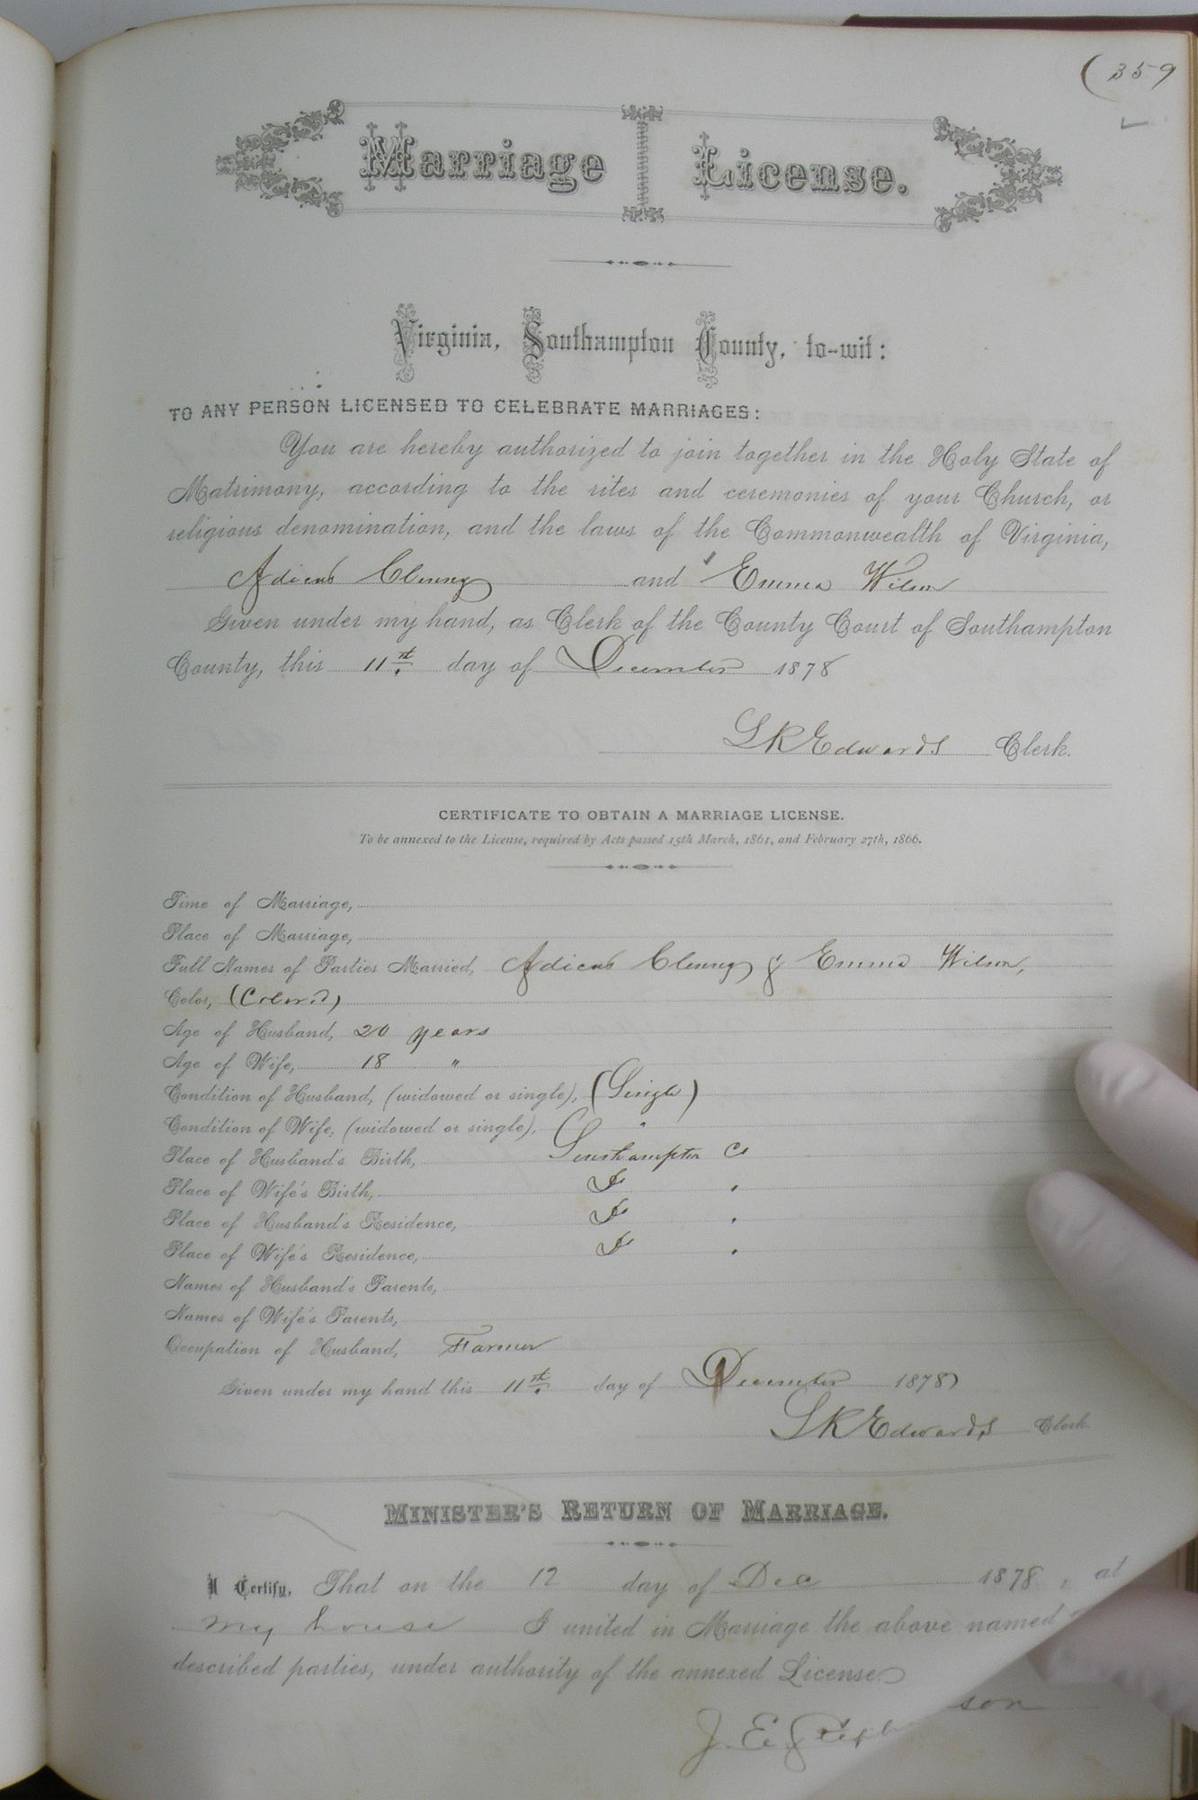 (359
Marriage License.
Virginia, Southampton County, to-wit:
TO ANY PERSON LICENSED TO CELEBRATE MARRIAGES:
You are hereby authorized to join together in the Holy State of
Matrimony, according to the rites and ceremonies of your Church, or
religious denomination, and the laws of the Commonwealth of Virginia,
and Emma Wilson
Given under my hand, as Clerk of the County Court of Southampton
County, this 11st day of December 1878
L R Edwards Clerk.
CERTIFICATE TO OBTAIN A MARRIAGE LICENSE.
To be annexed to the License, required by Acts passed 15th March, 1861, and February 27th, 1866.
Time of Marriage,
Place of Marriage,
Full Names of Parties Married, & Emma Wilson,
Color, (Colored)
Age of Husband, 20 years
Age of Wife, 18 "
Condition of Husband, (widowed or single), (Single)
Condition of Wife, (widowed or single), "
Place of Husband's Birth, Southampton Co
Place of Wife's Birth,
Place of Husband's Residence,
Place of Wife's Residence,
Names of Husband's Parents,
Names of Wife's Parents,
Occupation of Husband, Farmer
Given under my hand this 11st day of December 1878
L R Edwards Clerk
MINISTER'S RETURN OF MARRIAGE.
I Certify, That on the 12 day of Dec 1878, at
my house I united in Marriage the above named
described parties, under authority of the annexed License
J. E.